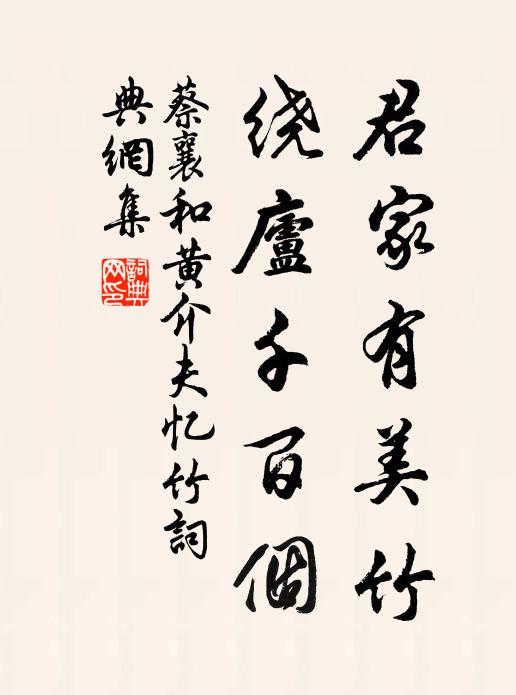 君家有美竹
绕廬千百個
蔡襄和黄介夫忆竹詞
典網集
詞典
网印